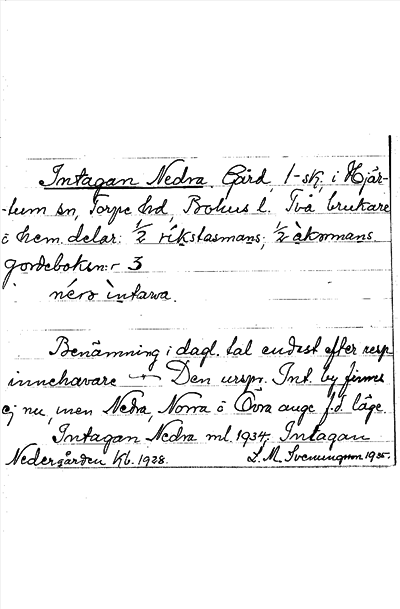 Intagan Nedra. Gård, 1-sk, i Hjär-
-tum sn, Torpe hd, Bohus l. Två brukare
å hem. delar: 1/2 rikstasmans; 1/2 àkermans.
Jordeboken:- 3
néro ìntawa.
Benämning i dagl. tal endast efter resp
innehavare — Den urspr. Int. by finns
ej nu, men Nedra, Norra o Övra ange f.d. läge.
Intagan Nedra ml. 1934, Intagan
Nedergården Kb. 1928. L. M. Svenungsson 1935.